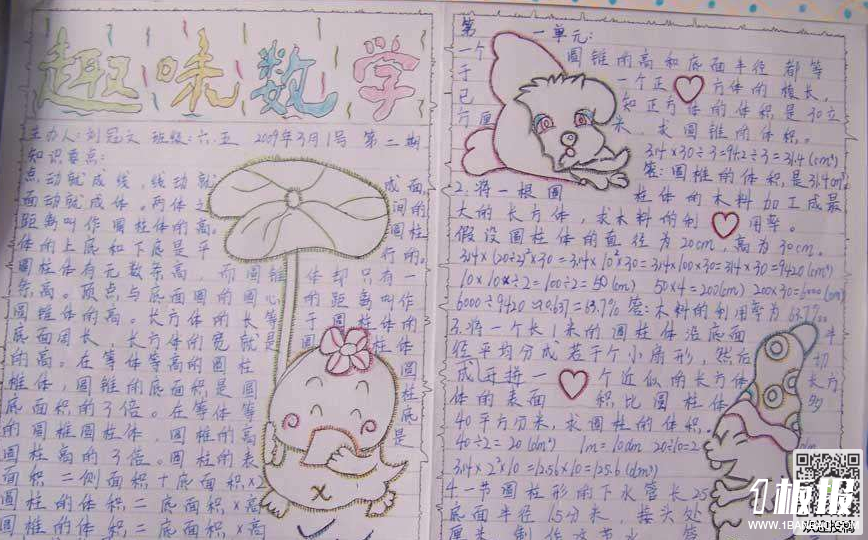 趣味数学
主办人:刘冠文 班级:六.五 2009年3月1号 第二期
知识要点:
点动就成线,线动就成面,
面动就成体。两体之间的
距离叫作圆柱体的高。圆柱
体的上底和下底是平行的。
圆柱体有无数条高,而圆锥体却只有一
条高。顶点与底面圆的圆心的距离叫作
圆锥体的高。长方体的长等于圆柱体的
底面周长,长方体的宽就是圆柱体
的高。在等体等高的圆柱圆
椎体,圆锥的底面积是圆柱
底面积的3倍。在等体等底
的圆椎圆柱体,圆椎的高是
圆柱高的3倍。圆柱的表
面积=侧面积+底面积×2
圆柱的体积=底面积×高
圆椎的体积=底面积×高
第一单元:
一个圆锥的高和底面半径都等
于一个正方体的棱长,
已知正方体的体积是30立
方厘米,求圆锥的体积。
3.14×30÷3=94.2÷3=31.4(cm³)
答:圆椎的体积是31.4cm³
2.将一根圆柱体的木料加工成最
大的长方体,求木料的利用率。
假设圆柱体的直径为20cm,高为30cm.
3.14×(20÷2)²×30=3.14×10²×30=3.14×100×30=314×30=9420(cm³)
10×10×÷2=100÷2=50(cm²) 50×4=200(cm²) 200×30=6000(cm³)
6000÷9420≈0.637=63.7% 答:木料的利用率为63.7%
3.将一个长1米的圆柱体沿底面半
径平均分成若干个小扇形,然后切
成开拼一个近似的长方体长方
体的表面积比圆柱体多
40平方分米,求圆柱的体积。
40÷2=20(dm²) 1m=10dm 20÷10=2 dm
3.14×2²×10=12.56×10=125.6(dm³)
4.一节圆柱形的下水管长25
底面半径1.5分米,接头处
1板报
WWW.1BANBAO.COM